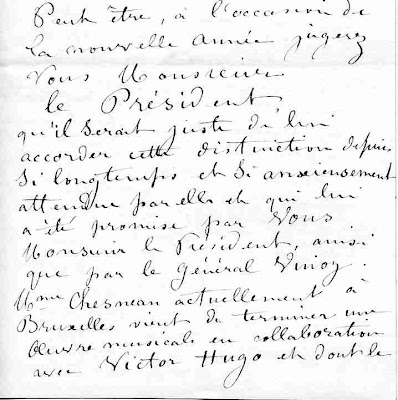 Peut être, à l'occasion de
la nouvelle année jugerez
Vous Monsieur
le Président,
qu'il serait juste de lui
accorder cette distinction depuis
Si longtemps et Si anxieusement
attendue par elle et qui lui
a été promise par Vous
Monsieur le Président, ainsi
que par le Général Vinoy.
Mme Chesneau actuellement à
Bruxelles vient de terminer une
Oeuvre musicale en collaboration
avec Victor Hugo et dont le